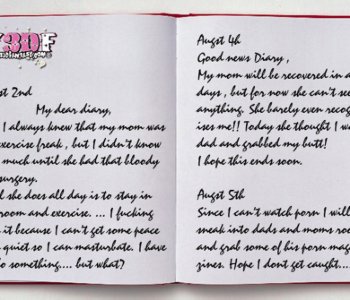 Y3DF
st 2nd
My dear diary,
I always knew that my mom was
exercise freak , but I didn't know
much until she had that bloody
surgery.
she does all day is to stay in
room and exercise. ... I fucking
it because I can't get some peace
quiet so I can masturbate. I have
something.... but what?
Augst 4h
Good news Diary ,
My mom will be recovered in a
days , but for now she can't see
anything. She barely even recog
ises me!! Today she thought I w
dad and grabbed my butt!
I hope this ends soon.
Augst 5th
Since I can't watch porn I will
sneak into dads and moms roo
and grab some of his porn mag
zines. Hope I dont get caught....